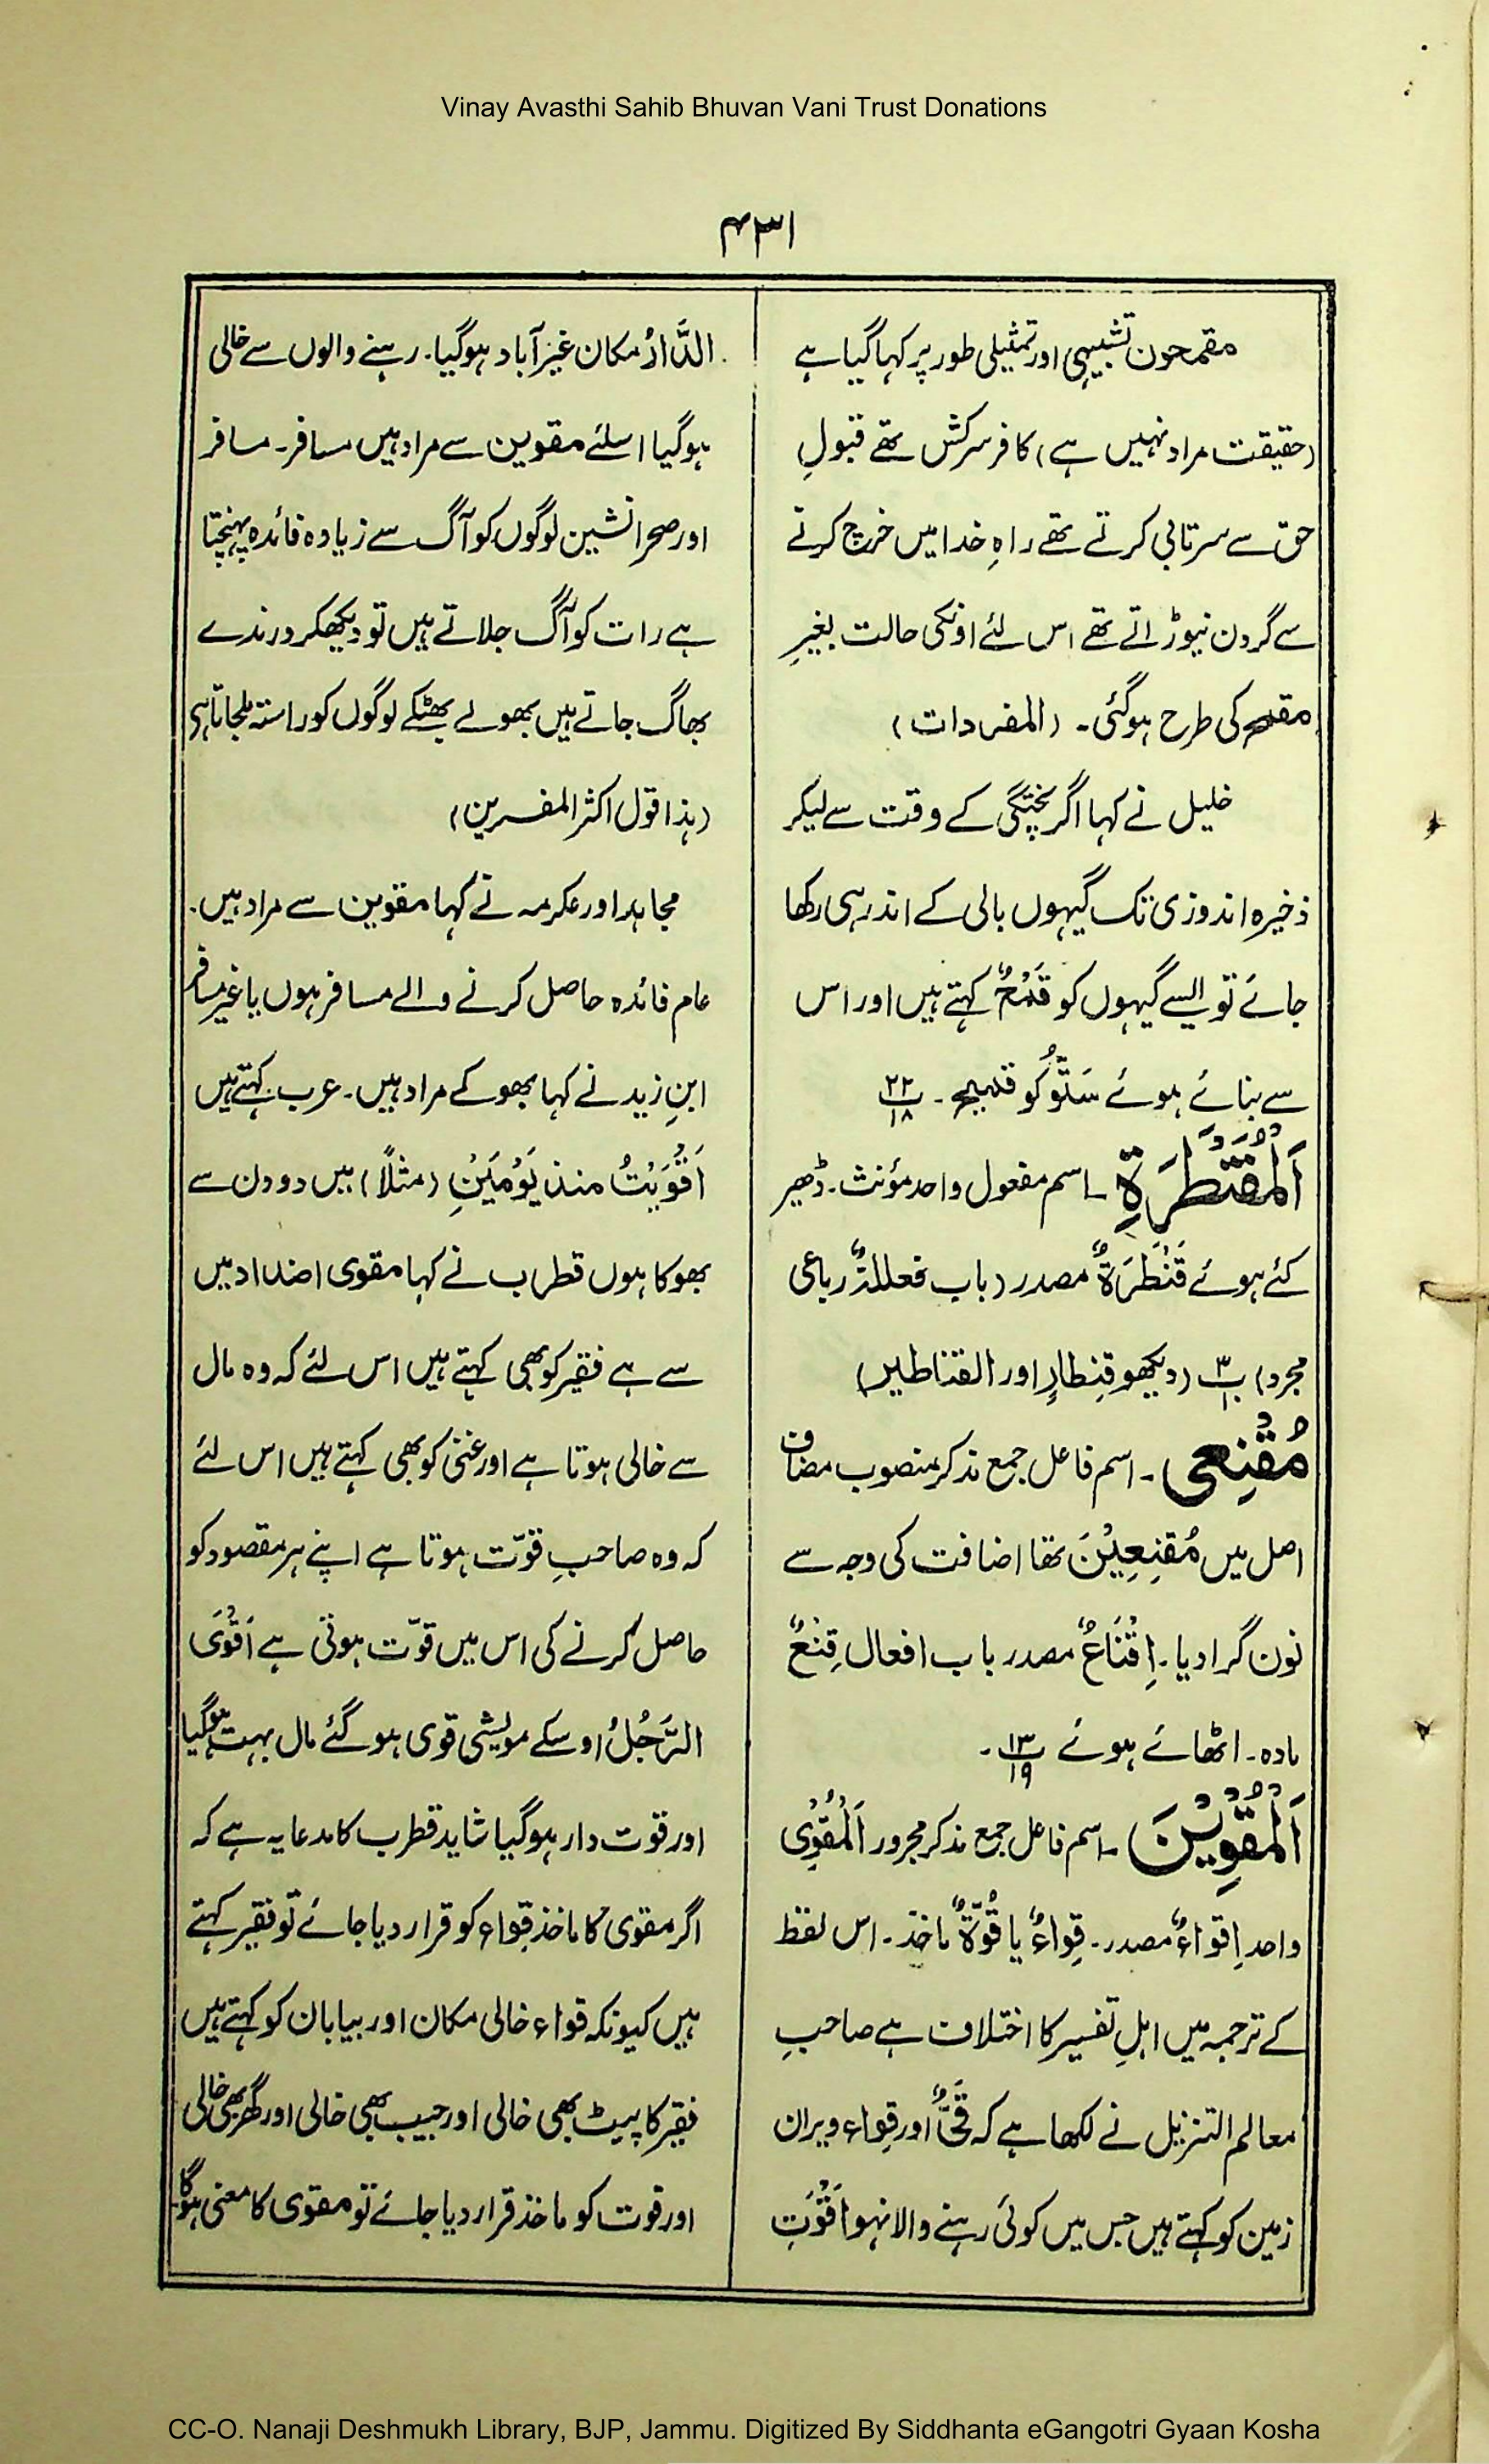 Vinay Avasthi Sahib Bhuvan Vani Trust Donations
۴۳۱
مقمحون تشبیہی اور تمثیلی طور پر کہا گیا ہے
(حقیقت مراد نہیں ہے) کافر سرکش تھے قبولِ
حق سے سرتابی کرتے تھے راہِ خدا میں خرچ کرنے
سے گردن نیوڑاتے تھے اس لئے اونکی حالت بغیرِ
مقمح کی طرح ہوگئی۔ (المفردات)
خلیل نے کہا اگر پختگی کے وقت سے لیکر
ذخیرہ اندوزی تک گیہوں بالی کے اندر ہی رکھا
جائے تو ایسے گیہوں کو قَمْحٌ کہتے ہیں اور اس
سے بنائے ہوئے سَتُّو کو قمیحہ۔ ۲۲/۱۸
اَلْمُقَنْطَرَةِ ۔ اسم مفعول واحد مؤنث۔ ڈھیر
کئے ہوئے قَنْطَرَةٌ مصدر (باب فعللۃٌ رباعی
مجرد) ۳/۱۰ (دیکھو قِنطارٍ اور القناطیر)
مُقْنِعِی ۔ اسم فاعل جمع مذکر منصوب مضاف
اصل میں مُقنِعِیْنَ تھا اضافت کی وجہ سے
نون گرا دیا۔ اِقْنَاعٌ مصدر باب افعال قِنْعٌ
مادہ۔ اٹھائے ہوئے ۱۳/۱۹۔
اَلْمُقْوِیْنَ ۔ اسم فاعل جمع مذکر مجرور اَلْمُقْوِی
واحد اِقواءٌ مصدر۔ قِواءٌ یا قُوَّةٌ ماخذ۔ اس لفظ
کے ترجمہ میں اہلِ تفسیر کا اختلاف ہے صاحبِ
معالم التنزیل نے لکھا ہے کہ قَیٌّ اور قِواء ویران
زمین کو کہتے ہیں جس میں کوئی رہنے والا نہو اَقْوَتِ
الدَّارُ مکان غیر آباد ہوگیا۔ رہنے والوں سے خالی
ہوگیا اسلئے مقوین سے مراد ہیں مسافر۔ مسافر
اور صحرا نشین لوگوں کو آگ سے زیادہ فائدہ پہنچتا
ہے رات کو آگ جلاتے ہیں تو دیکھکر درندے
بھاگ جاتے ہیں بھولے بھٹکے لوگوں کو راستہ ملجاتا ہی
(ہذا قول اکثر المفسرین)
مجاہد اور عکرمہ نے کہا مقوین سے مراد ہیں۔
عام فائدہ حاصل کرنے والے مسافر ہوں یا غیر مسافر
ابنِ زید نے کہا بھوکے مراد ہیں۔ عرب کہتے ہیں
اَقْوَیْتُ منذ یَوْمَیْنِ (مثلاً) میں دو دن سے
بھوکا ہوں قطرب نے کہا مقوی اضداد میں
سے ہے فقیر کو بھی کہتے ہیں اس لئے کہ وہ مال
سے خالی ہوتا ہے اور غنی کو بھی کہتے ہیں اس لئے
کہ وہ صاحبِ قوّت ہوتا ہے اپنے ہر مقصود کو
حاصل کرنے کی اس میں قوّت ہوتی ہے اَقْوَی
الرَّجُلُ اوسکے مویشی قوی ہو گئے مال بہت ہوگیا
اور قوت دار ہوگیا شاید قطرب کا مدعا یہ ہے کہ
اگر مقوی کا ماخذ قِواء کو قرار دیا جائے تو فقیر کہتے
ہیں کیونکہ قواء خالی مکان اور بیابان کو کہتے ہیں
فقیر کا پیٹ بھی خالی اور جیب بھی خالی اور گھر بھی خالی
اور قوت کو ماخذ قرار دیا جائے تو مقوی کا معنی ہوگا۔
CC-O. Nanaji Deshmukh Library, BJP, Jammu. Digitized By Siddhanta eGangotri Gyaan Kosha